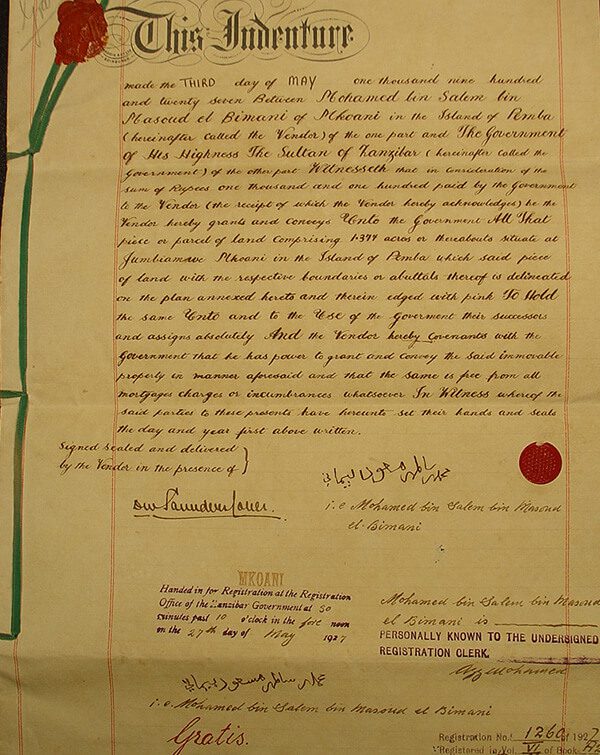 This Indenture
made the THIRD day of MAY one thousand nine hundred
and twenty seven Between Mohamed bin Salem bin
Masoud el Bimani of Mkoani in the Island of Pemba
(hereinafter called the Vendor) of the one part and The Government
of His Highness The Sultan of Zanzibar (hereinafter called the
Government) of the other part Witnesseth that in consideration of the
sum of Rupees one thousand and one hundred paid by the Government
to the Vendor (the receipt of which the Vendor hereby acknowledges) he the
Vendor hereby grants and conveys Unto the Government All That
piece or parcel of land comprising 1.374 acres or thereabouts situate at
Jumbiamawe Mkoani in the Island of Pemba which said piece
of land with the respective boundaries or abuttals thereof is delineated
on the plan annexed hereto and therein edged with pink To Hold
the same Unto and to the Use of the Goverment their successors
and assigns absolutely And the Vendor hereby Covenants with the
Government that he has power to grant and convey the said immovable
property in manner aforesaid and that the same is free from all
mortgages charges or incumbrances whatsoever In Witness whereof the
said parties to these presents have hereunto set their hands and seals
the day and year first above written.
Signed sealed and delivered
by the Vendor in the presence of
i.e Mohamed bin Salem bin Masoud
el-Bimani
MKOANI
Handed in for Registration at the Registration
Office of the Zanzibar Government at 30
minutes past 10 o'clock in the fore noon
on the 27th day of May 1927
Mohamed bin Salem bin Masoud
el Bimani is
PERSONALLY KNOWN TO THE UNDERSIGNED
REGISTRATION CLERK.
i.e Mohamed bin Salem bin Masoud el Bimani
Gratis.
Registration No. 1260 of 1927
Registered in Vol. VI of Book